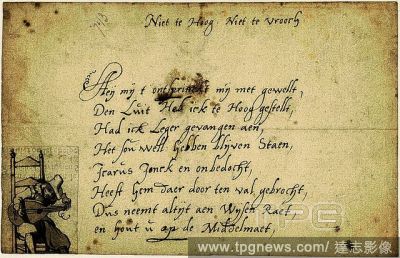 Niet te Hoog Niet te vroech
Hey mij t ontspringht mij met gewelt,
Den Luit Heb ick te Hoog gestelt,
Had ick Leger gevangen aen,
Het sou well Hebben blijven Staen,
Icarus Jonck en onbedocht,
Heeft Hem Daer door ten val gebrocht,
Dus neemt altijt aen Wijsen Raet,
en hout u op de Middelmaet,
TPG
www.tpgnews.com / 達志影像